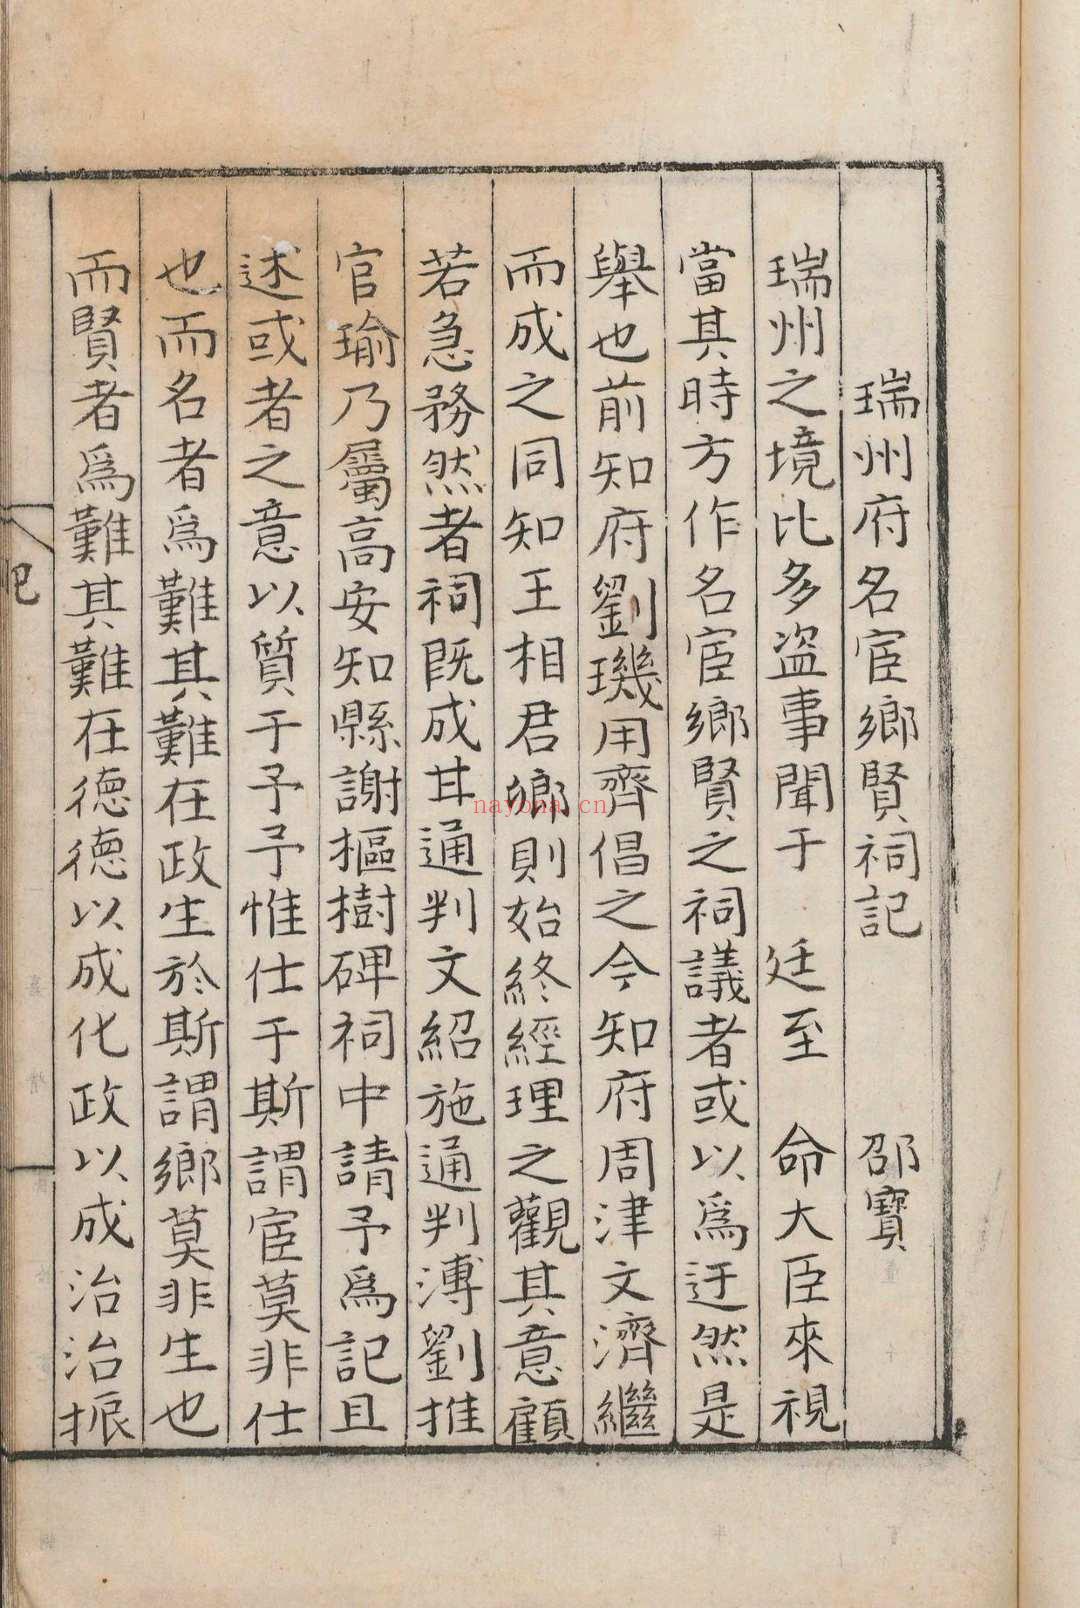 瑞州府名宦鄉賢祠記 邵寶
瑞州之境比多盗事聞于 廷至 命大臣來視
當其時方作名宦鄉賢之祠議者或以爲迂然是
舉也前知府劉璣用齊倡之今知府周津文濟繼
而成之同知王相君鄉則始終經理之觀其意顧
若急務然者祠既成甘通判文紹施通判溥劉推
官瑜乃屬高安知縣謝樞樹碑祠中請予爲記且
述或者之意以質于予予惟仕于斯謂宦莫非仕
也而名者爲難其難在政生於斯謂鄉莫非生也
而賢者爲難其難在德德以成化政以成治治振
記
nayona.cn